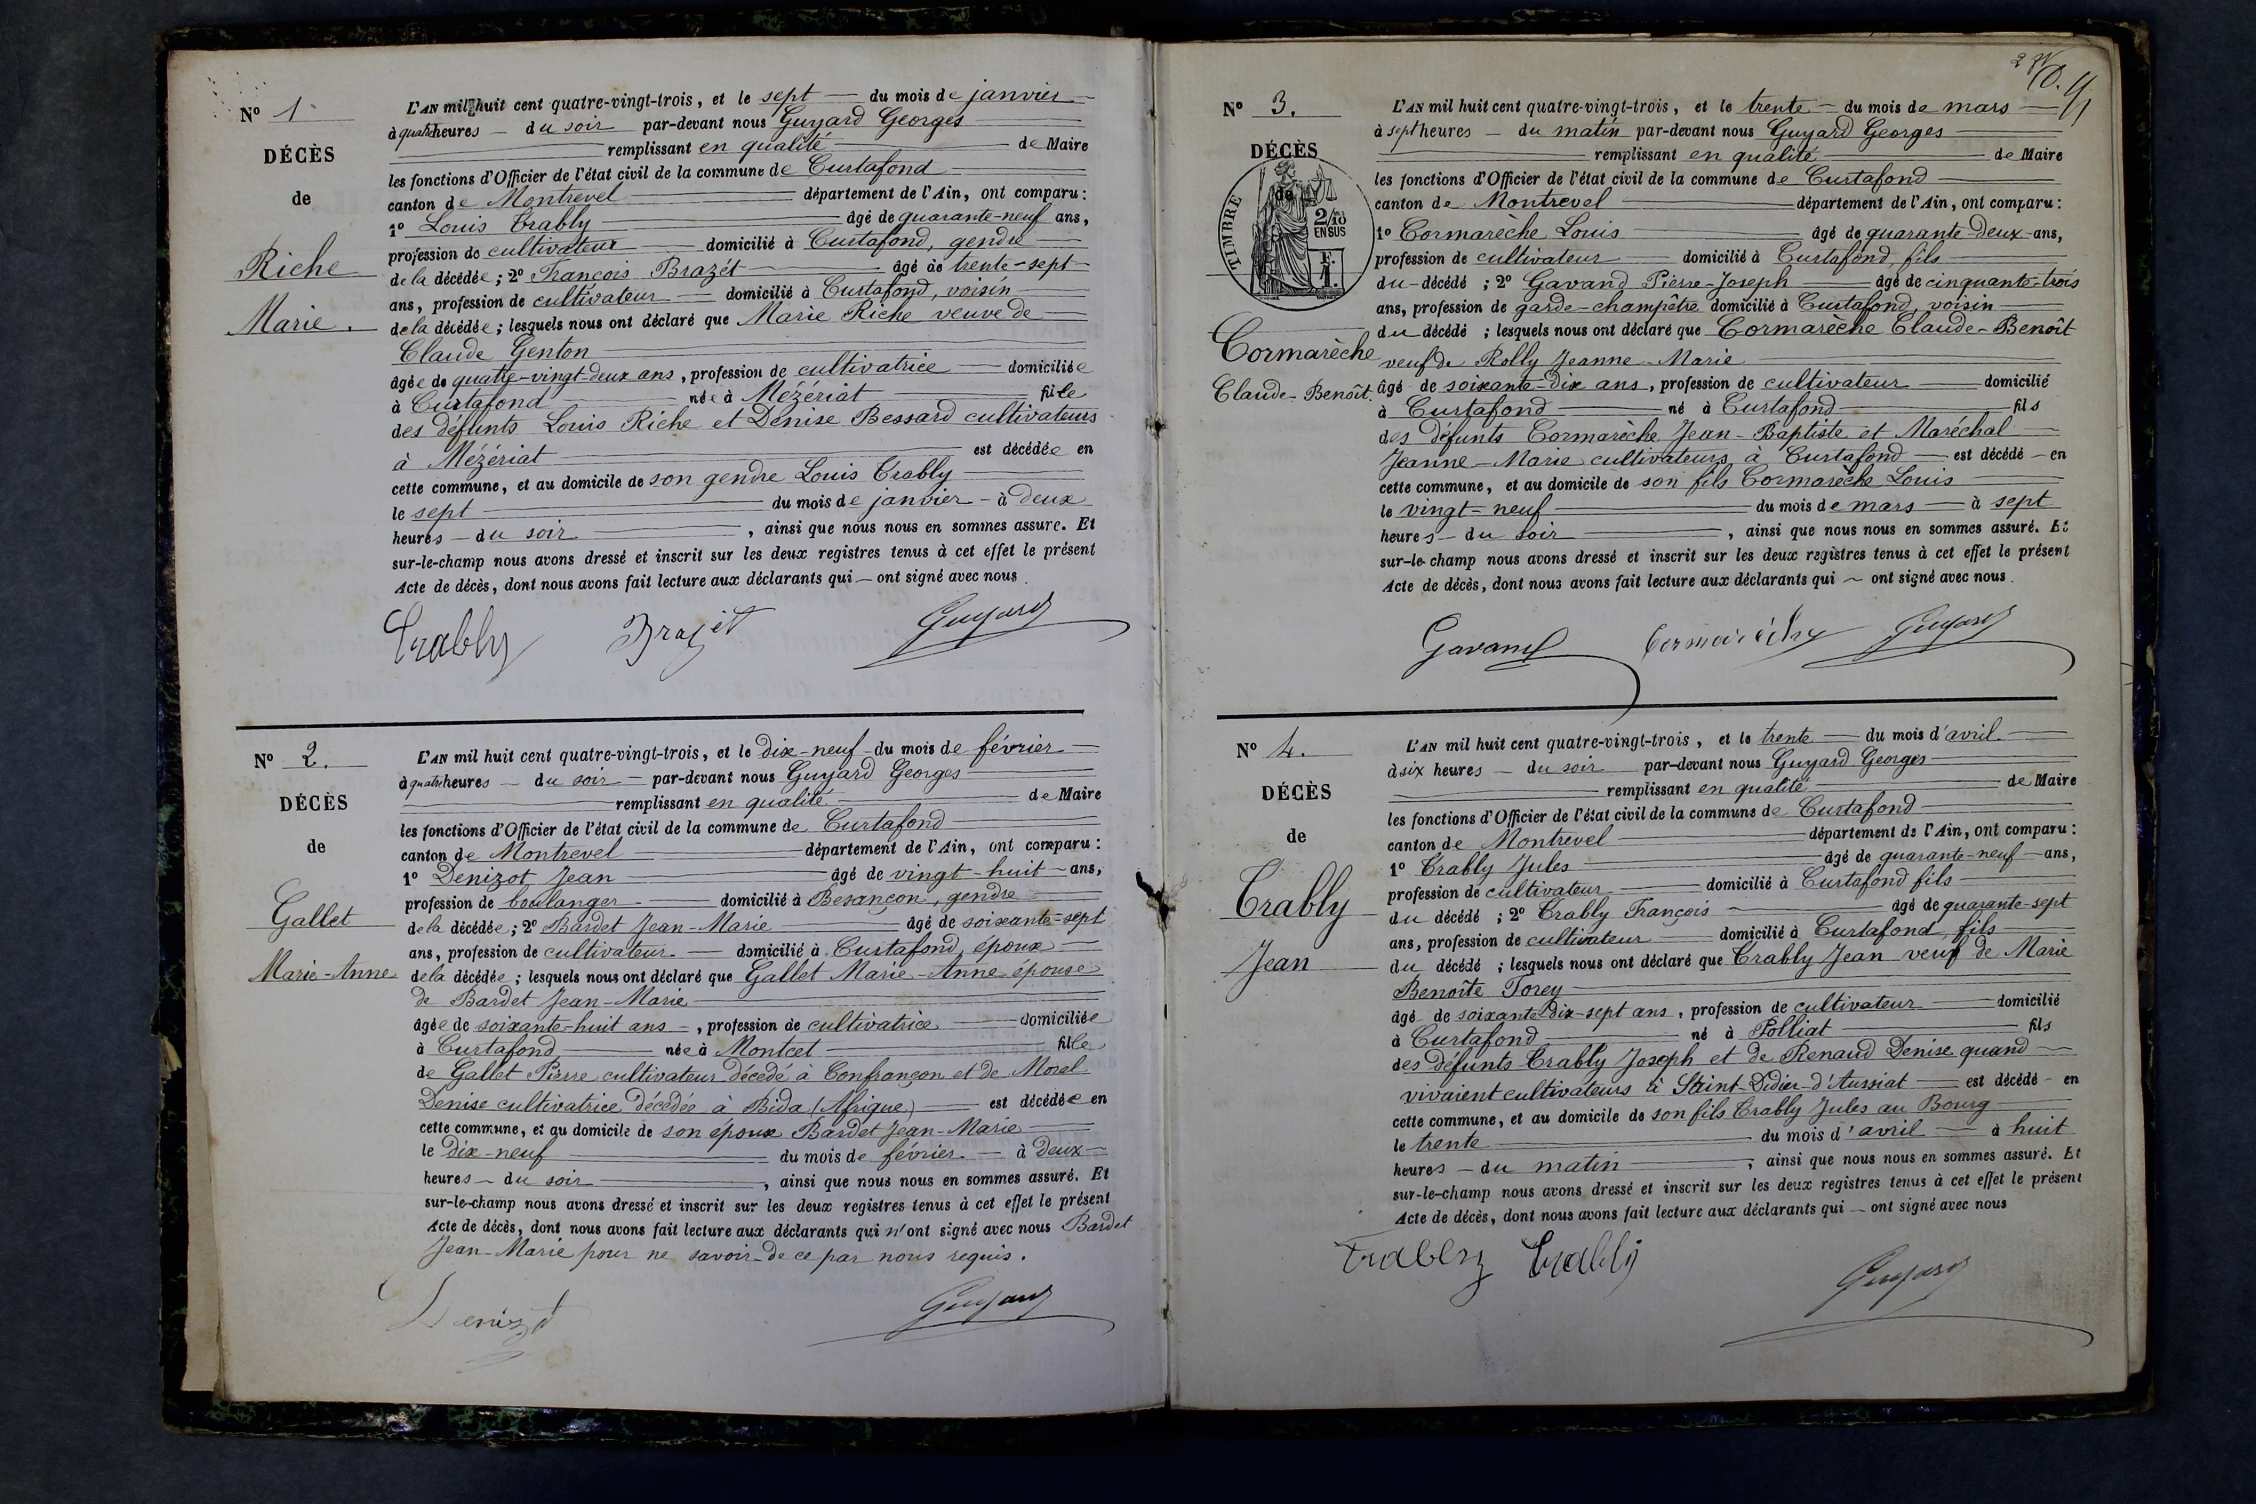 N° 1
DÉCÈS
de
Riche
Marie.
L'AN mil huit cent quatre-vingt-trois, et le sept du mois de janvier
à quatre heures du soir par-devant nous Guyard Georges
remplissant en qualité de Maire
les fonctions d'Officier de l'état civil de la commune de Curtafond
canton de Montrevel département de l'Ain, ont comparu :
1° Louis Trably âgé de quarante-neuf ans,
profession de cultivateur domicilié à Curtafond, gendre
de la décédée ; 2° François Brazet âgé de trente-sept
ans, profession de cultivateur domicilié à Curtafond, voisin
de la décédée ; lesquels nous ont déclaré que Marie Riche veuve de
Claude Genton
âgée de quatre-vingt-deux ans, profession de cultivatrice domiciliée
à Curtafond née à Mézériat fille
des défunts Louis Riche et Denise Bessard cultivateurs
à Mézériat est décédée en
cette commune, et au domicile de son gendre Louis Trably
le sept du mois de janvier à deux
heures du soir, ainsi que nous nous en sommes assuré. Et
sur-le-champ nous avons dressé et inscrit sur les deux registres tenus à cet effet le présent
Acte de décès, dont nous avons fait lecture aux déclarants qui ont signé avec nous.
Trably Brazet Guyard
N° 2.
DÉCÈS
de
Gallet
Marie-Anne
L'AN mil huit cent quatre-vingt-trois, et le dix-neuf du mois de février
à quatre heures du soir par-devant nous Guyard Georges
remplissant en qualité de Maire
les fonctions d'Officier de l'état civil de la commune de Curtafond
canton de Montrevel département de l'Ain, ont comparu :
1° Denizot Jean âgé de vingt-huit ans,
profession de boulanger domicilié à Besançon, gendre
de la décédée ; 2° Bardet Jean-Marie âgé de soixante-sept
ans, profession de cultivateur domicilié à Curtafond, époux
de la décédée ; lesquels nous ont déclaré que Gallet Marie-Anne épouse
de Bardet Jean-Marie
âgée de soixante-huit ans, profession de cultivatrice domiciliée
à Curtafond née à Montcet fille
de Gallet Pierre cultivateur décédé à Confrançon et de Morel
Denise cultivatrice décédée à Bida (Afrique) est décédée en
cette commune, et au domicile de son époux Bardet Jean-Marie
le dix-neuf du mois de février à deux
heures du soir, ainsi que nous nous en sommes assuré. Et
sur-le-champ nous avons dressé et inscrit sur les deux registres tenus à cet effet le présent
Acte de décès, dont nous avons fait lecture aux déclarants qui n'ont signé avec nous Bardet
Jean-Marie pour ne savoir de ce par nous requis.
Denizot Guyard
N° 3.
DÉCÈS
de
TIMBRE
2/10
EN SUS
F.
1.
Cormarèche
Claude-Benoît.
L'AN mil huit cent quatre-vingt-trois, et le trente du mois de mars
à sept heures du matin par-devant nous Guyard Georges
remplissant en qualité de Maire
les fonctions d'Officier de l'état civil de la commune de Curtafond
canton de Montrevel département de l'Ain, ont comparu :
1° Cormarèche Louis âgé de quarante-deux ans,
profession de cultivateur domicilié à Curtafond, fils
du décédé ; 2° Gavand Pierre-Joseph âgé de cinquante-trois
ans, profession de garde-champêtre domicilié à Curtafond, voisin
du décédé ; lesquels nous ont déclaré que Cormarèche Claude-Benoît
veuf de Rolly Jeanne-Marie
âgé de soixante-dix ans, profession de cultivateur domicilié
à Curtafond né à Curtafond fils
des défunts Cormarèche Jean-Baptiste et Maréchal
Jeanne-Marie cultivateurs à Curtafond est décédé en
cette commune, et au domicile de son fils Cormarèche Louis
le vingt-neuf du mois de mars à sept
heures du soir, ainsi que nous nous en sommes assuré. Et
sur-le-champ nous avons dressé et inscrit sur les deux registres tenus à cet effet le présent
Acte de décès, dont nous avons fait lecture aux déclarants qui ont signé avec nous.
Gavand Cormarèche Guyard
N° 4.
DÉCÈS
de
Trably
Jean
L'AN mil huit cent quatre-vingt-trois, et le trente du mois d'avril
à six heures du soir par-devant nous Guyard Georges
remplissant en qualité de Maire
les fonctions d'Officier de l'état civil de la commune de Curtafond
canton de Montrevel département de l'Ain, ont comparu :
1° Trably Jules âgé de quarante-neuf ans,
profession de cultivateur domicilié à Curtafond fils
du décédé ; 2° Trably François âgé de quarante-sept
ans, profession de cultivateur domicilié à Curtafond, fils
du décédé ; lesquels nous ont déclaré que Trably Jean veuf de Marie
Benoîte Torey
âgé de soixante-dix-sept ans, profession de cultivateur domicilié
à Curtafond né à Polliat fils
des défunts Trably Joseph et de Renaud Denise quand
vivaient cultivateurs à Saint-Didier-d'Aussiat est décédé en
cette commune, et au domicile de son fils Trably Jules au Bourg
le trente du mois d'avril à huit
heures du matin, ainsi que nous nous en sommes assuré. Et
sur-le-champ nous avons dressé et inscrit sur les deux registres tenus à cet effet le présent
Acte de décès, dont nous avons fait lecture aux déclarants qui ont signé avec nous
Trably Trably Guyard